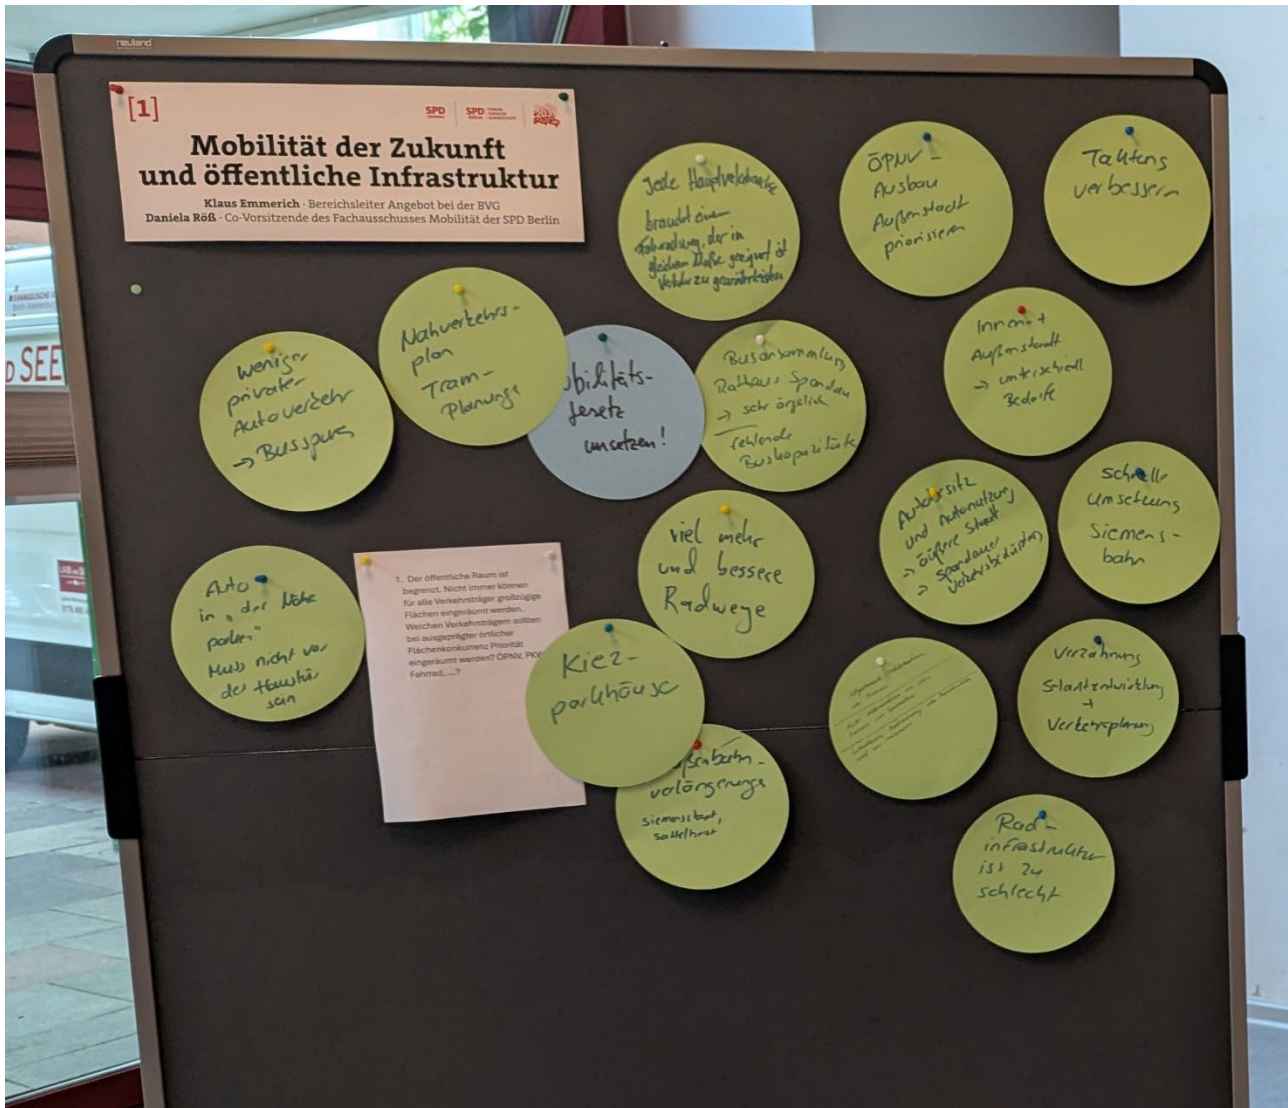 neuland
[1]
SPD
SPD
BERLIN
Mobilität der Zukunft
und öffentliche Infrastruktur
Klaus Emmerich · Bereichsleiter Angebot bei der BVG
Daniela Röß · Co-Vorsitzende des Fachausschusses Mobilität der SPD Berlin
Jede
braucht einen
der in
gleichem Maße geeignet ist
Verkehr zu gewährleisten
ÖPNV-
Ausbau
Außenstadt
priorisieren
Taktung
verbessern
Weniger
privater
Autoverkehr
→ Busspur
Nahverkehrs-
plan
Tram-
Planung
obilitäts-
gesetz
umsetzen!
Busansammlung
Rathaus Spandau
→ sehr ärgerlich
fehlende
Buskapazität
Innen +
Außenstadt
→ unterschiedl
Bedarfe
Autobesitz
und Autonutzung
→ äußere Stadt
→ Spandauer
Verkehrsbedürfnis
Schnelle
Umsetzung
Siemens-
bahn
Auto
in "der Nähe
parken"
Muss nicht vor
der Haustür
sein
1. Der öffentliche Raum ist
begrenzt. Nicht immer können
für alle Verkehrsträger großzügige
Flächen eingeräumt werden.
Welchen Verkehrsträgern sollten
bei ausgeprägter örtlicher
Flächenkonkurrenz Priorität
eingeräumt werden? ÖPNV, PKW
Fahrrad, ...?
viel mehr
und bessere
Radwege
Kiez-
parkhäuse
ßenbahn-
verlängerung
Siemensstadt,
Verzahnung
Stadtentwicklung
+
Verkehrsplanung
Rad-
infrastruktur
ist zu
schlecht
EVANGELISCHE
SEE